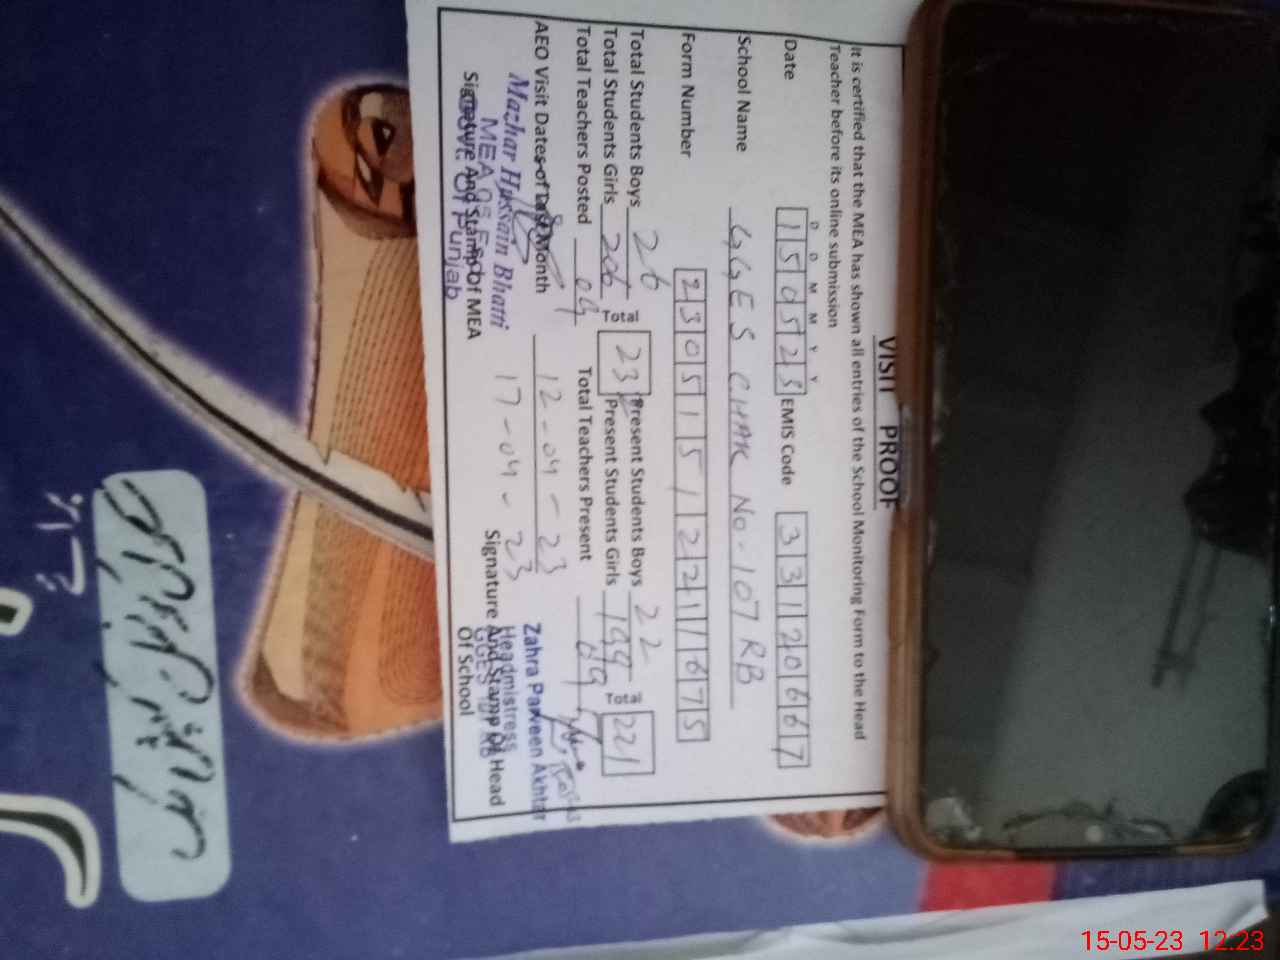 VISIT PROOF
It is certified that the MEA has shown all entries of the School Monitoring Form to the Head
Teacher before its online submission
D D M M Y Y
Date 150523 EMIS Code 33120667
School Name GGES CHAK No-107 RB
Form Number 23051512211675
Total Students Boys 26 Total 232 Present Students Boys 22 Total 221
Total Students Girls 206 Present Students Girls 199
Total Teachers Posted 09 Total Teachers Present 09
AEO Visit Dates of Last Month 12-04-23
17-04-23
Mazhar Hussain Bhatti
MEA
Govt. Of Punjab
Signature And Stamp Of MEA
Zahra Parveen Akhtar
Headmistress
GGES 107 RB
Signature And Stamp Of Head
Of School
15-05-23 12:23